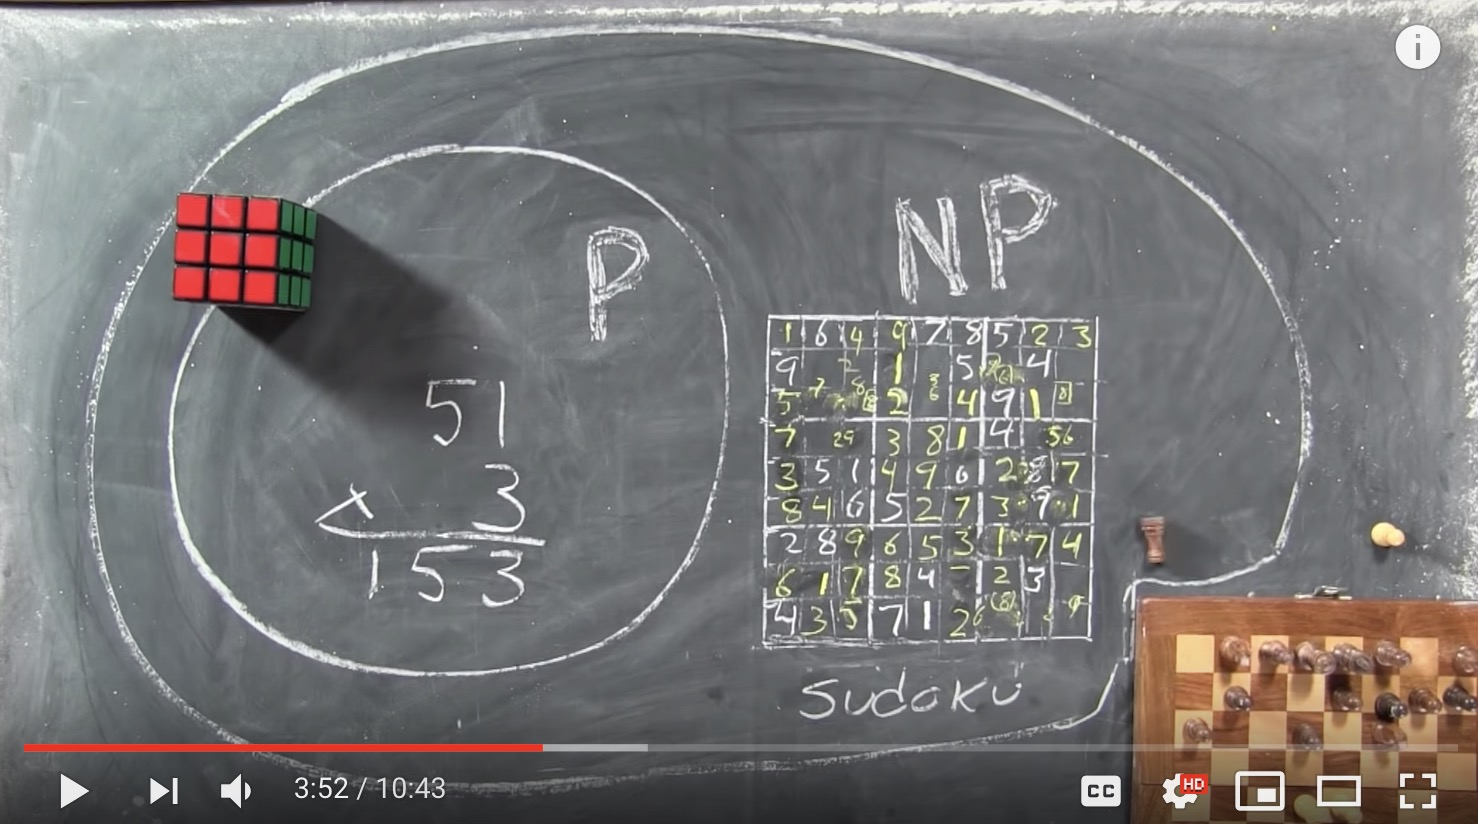 i
NP
P
51
× 3
153
1 6 4 9 7 8 5 2 3
9 2 1 5 4
5 7 8 2 4 9 1 8
7 29 3 8 1 4 56
3 5 1 4 9 6 2 8 7
8 4 6 5 2 7 3 9 1
2 8 9 6 5 3 1 7 4
6 1 7 8 4 2 3
4 3 5 7 1 2 6 (8) 9
Sudoku
3:52 / 10:43
CC
HD